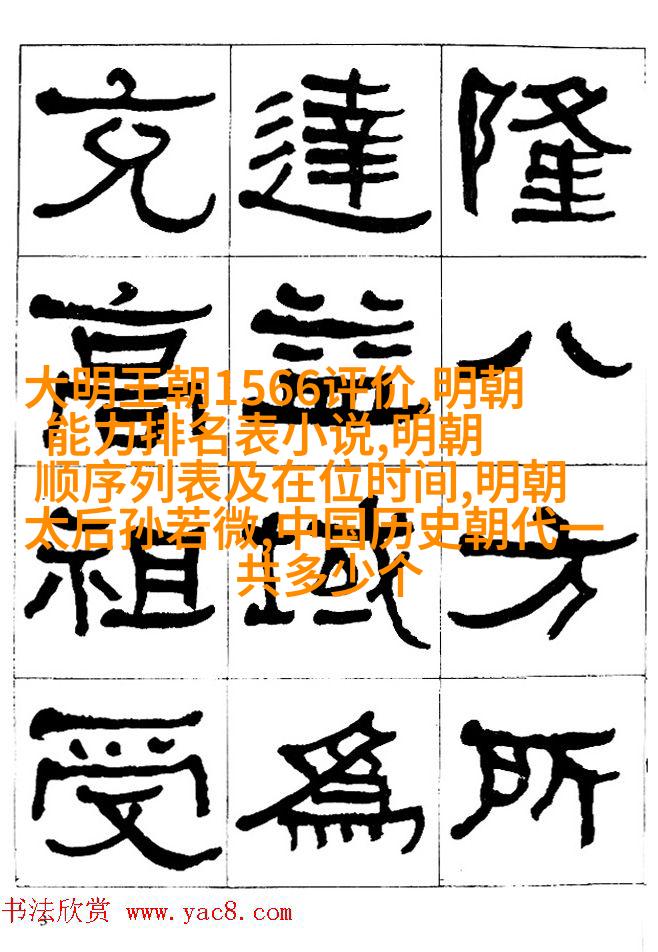 隆八方所
達益域爲
充高祖受
大明王朝1566评价,明朝
能力排名表小说,明朝
顺序列表及在位时间,明朝
太后孙若微,中国历史朝代一
共多少个
书法欣赏 www.yac8.com
3